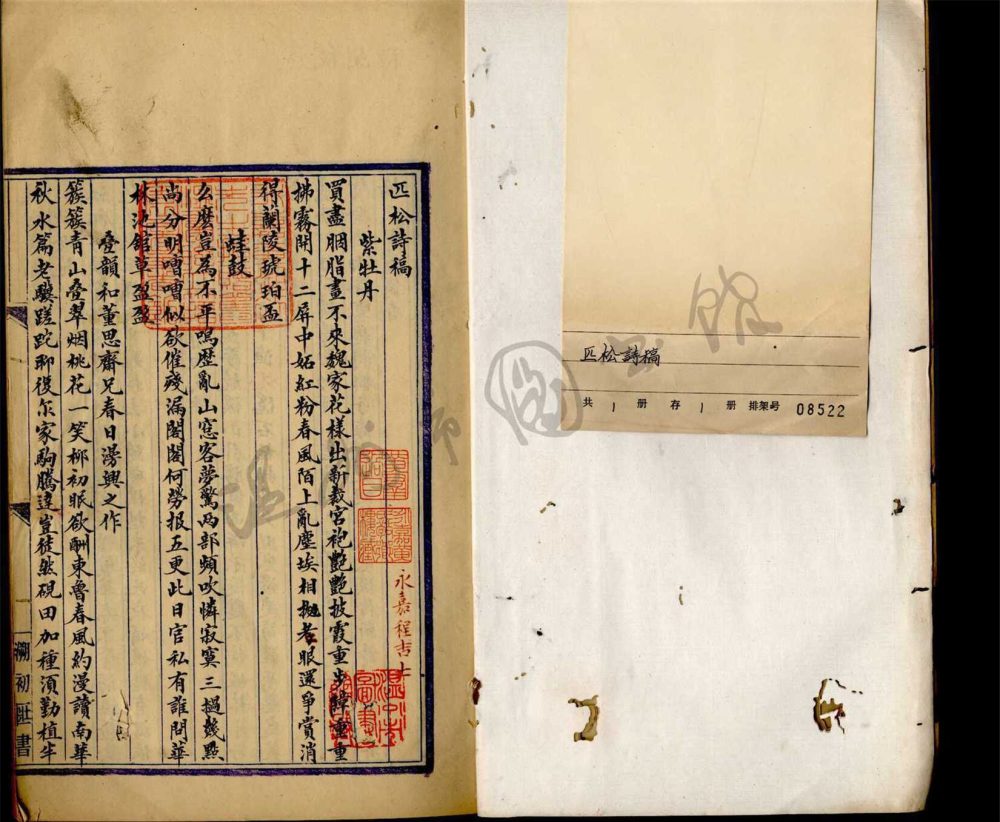 匹松詩稿
紫牡丹
買盡胭脂畫不來魏家花樣出新裁宮袍艷艷披霞重步障重重
拂霧開十二屏中妬紅粉春風陌上亂塵埃相老眼還爭賞消
得蘭陵琥珀盃
蛙鼓
么麼豈為不平鳴歷亂山窓客夢驚兩部頻吹憐寂寞三撾幾點
尚分明嘈嘈似欲催殘漏閣閣何勞报五更此日官私有誰問華
林池館草盈盈
疊韻和董思齋兄春日漫興之作
簇簇青山疊翠烟桃花一笑柳初眠欲酬東魯春風約漫讀南華
秋水篇老驥蹉跎聊復尔家駒騰達豈徒然硯田加種須勤植半
溯初
書
永嘉程吉
匹松詩稿
共 1 册 存 1 册 排架号 08522
温 州 市 圖 书 館